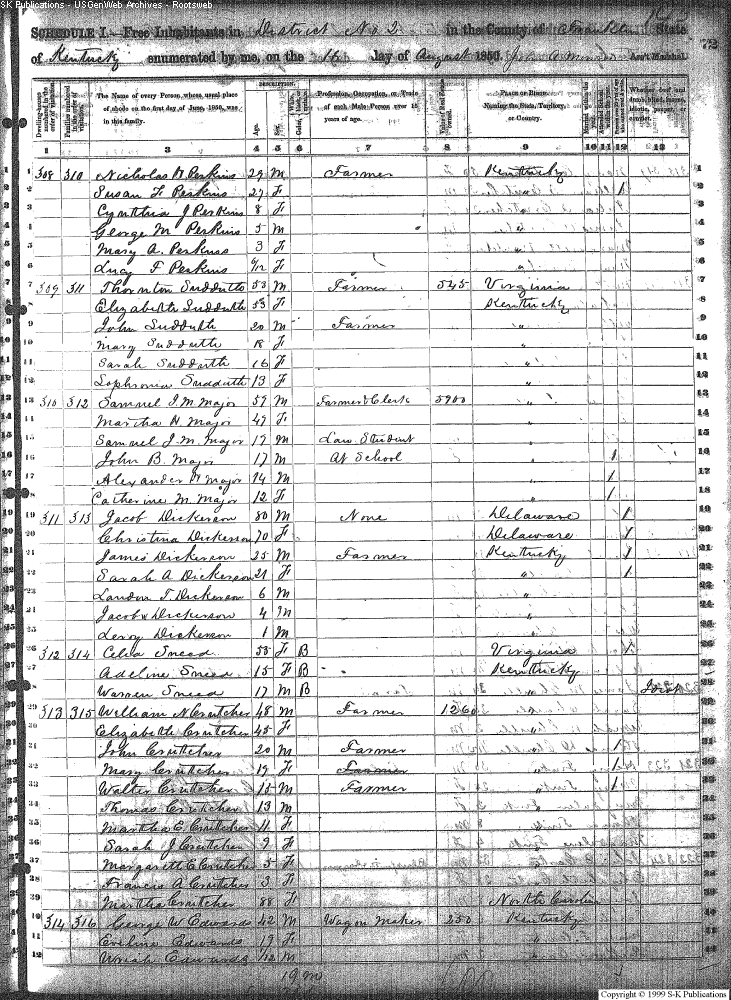 S-K Publications - USGenWeb Archives - Rootsweb
SCHEDULE I.—Free Inhabitants in District No 2 in the County of Franklin State
of Kentucky enumerated by me, on the 16 day of August 1850. Ass't Marshal.
72
Dwelling-houses numbered in the order of visitation.
Families numbered in the order of visitation.
The Name of every Person whose usual place of abode on the first day of June, 1850, was in this family.
DESCRIPTION.
Age.
Sex.
Profession, Occupation, or Trade of each Male Person over 15 years of age.
Value of Real Estate owned.
PLACE OF BIRTH.
Naming the State, Territory, or Country.
Whether deaf and dumb, blind, insane, idiotic, pauper, or convict.
1 2 3 4 5 6 7 8 9 10 11 12 13
1 308 310 Nicholas Perkins 29 M Farmer Kentucky 1
2 Susan F Perkins 27 F / 2
3 Cynthia J Perkins 8 F 3
4 George M Perkins 5 M " 4
5 Mary A. Perkins 3 F 5
6 Lucy F Perkins 6/12 F " 6
7 309 311 Thornton Suddutte 53 M Farmer 545 Virginia 7
8 Elizabeth Suddutte 53 F Kentucky 8
9 John Suddutte 20 M Farmer " 9
10 Mary Suddutte 18 F " 10
11 Sarah Suddutte 16 F " 11
12 Sophronia Suddutte 13 F " 12
13 310 312 Samuel I. M. Major 59 M Farmer & Clerk 5900 " 13
14 Martha H Major 49 F " 14
15 Samuel J. M. Major 19 M Law Student " 15
16 John B. Major 17 M At School " / 16
17 Alexander H Major 14 M " / 17
18 Catherine M. Major 12 F " / 18
19 311 313 Jacob Dickerson 80 M None Delaware / 19
20 Christina Dickerson 70 F Delaware / 20
21 James Dickerson 25 M Farmer Kentucky / 21
22 Sarah A Dickerson 21 F " / 22
23 Landon T. Dickerson 6 M "
24 Jacob Dickerson 4 M "
25 Leroy Dickerson 1 M "
26 312 314 Celia Sneed 55 F B Virginia /
27 Adeline Sneed 15 F B Kentucky
28 Warren Sneed 17 M B " Idiot
29 313 315 William N Crutcher 48 M Farmer 1260 "
30 Elizabeth Crutcher 45 F "
31 John Crutcher 20 M Farmer " /
32 Mary Crutcher 19 F Farmer " /
33 Walter Crutcher 15 M Farmer " /
34 Thomas Crutcher 13 M "
35 Martha E. Crutcher 11 F "
36 Sarah J Crutcher 9 F "
37 Margarett E Crutcher 5 F "
38 Francis A Crutcher 3 F "
39 Martha Crutcher 88 F North Carolina
40 314 316 George W Edwards 42 M Wagon Maker 250 Kentucky
41 Eveline Edwards 19 F "
42 Edwards /12 M "
19 m
Copyright © 1999 S-K Publications